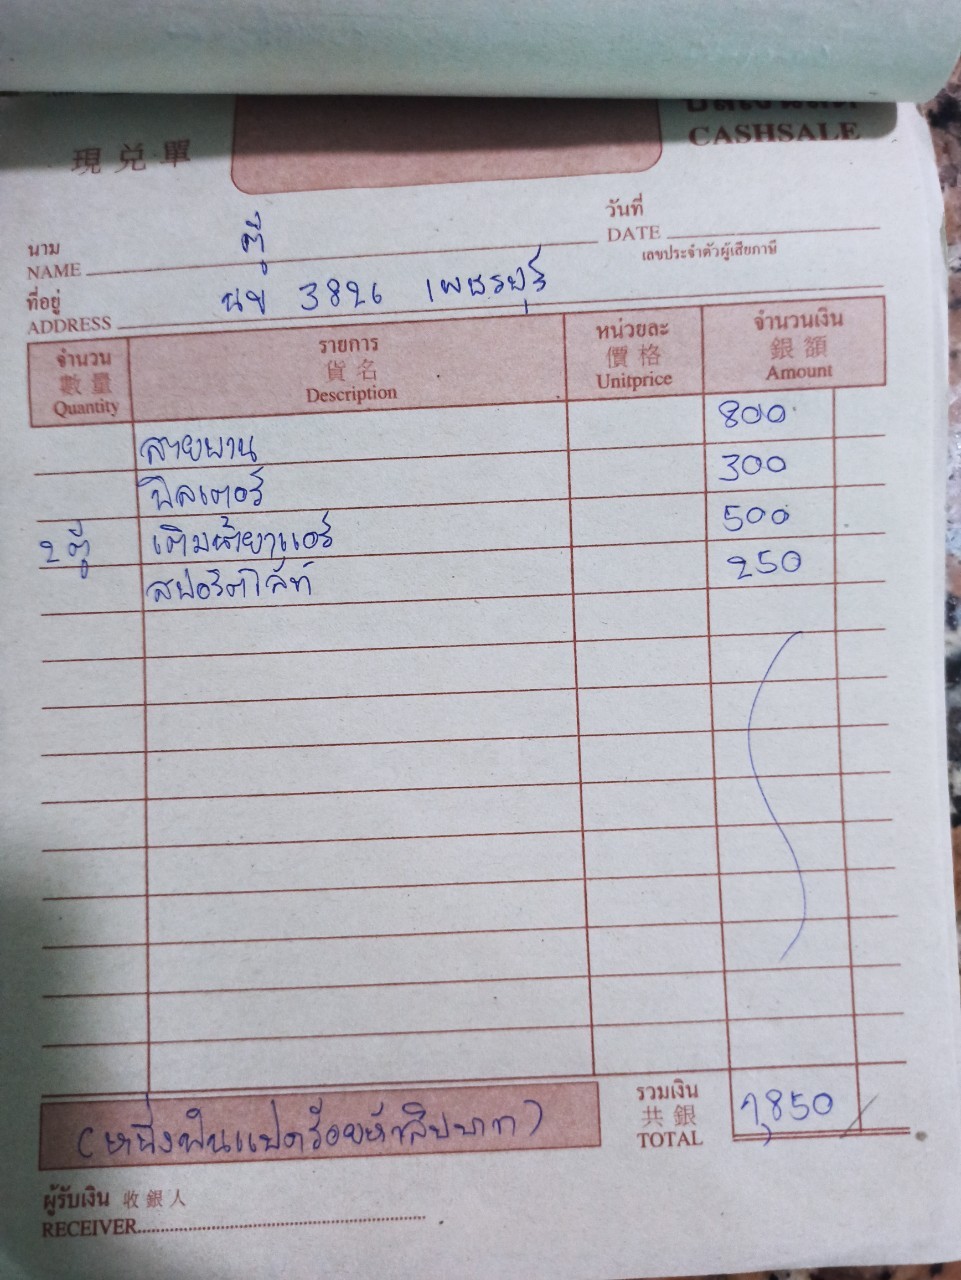 現兑單
CASHSALE
วันที่
DATE
นาม ตี่
NAME
เลขประจำตัวผู้เสียภาษี
ที่อยู่ นข 3826 เพชรบุรี
ADDRESS
จำนวน รายการ หน่วยละ จำนวนเงิน
數量 貨名 價格 銀額
Quantity Description Unitprice Amount
สายพาน 800
ฟิลเตอร์ 300
2 ตู้ เติมน้ำยาแอร์ 500
สปอร์ตไลท์ 250
รวมเงิน
共銀
TOTAL 1,850
(หนึ่งพันแปดร้อยห้าสิบบาท)
ผู้รับเงิน 收銀人
RECEIVER